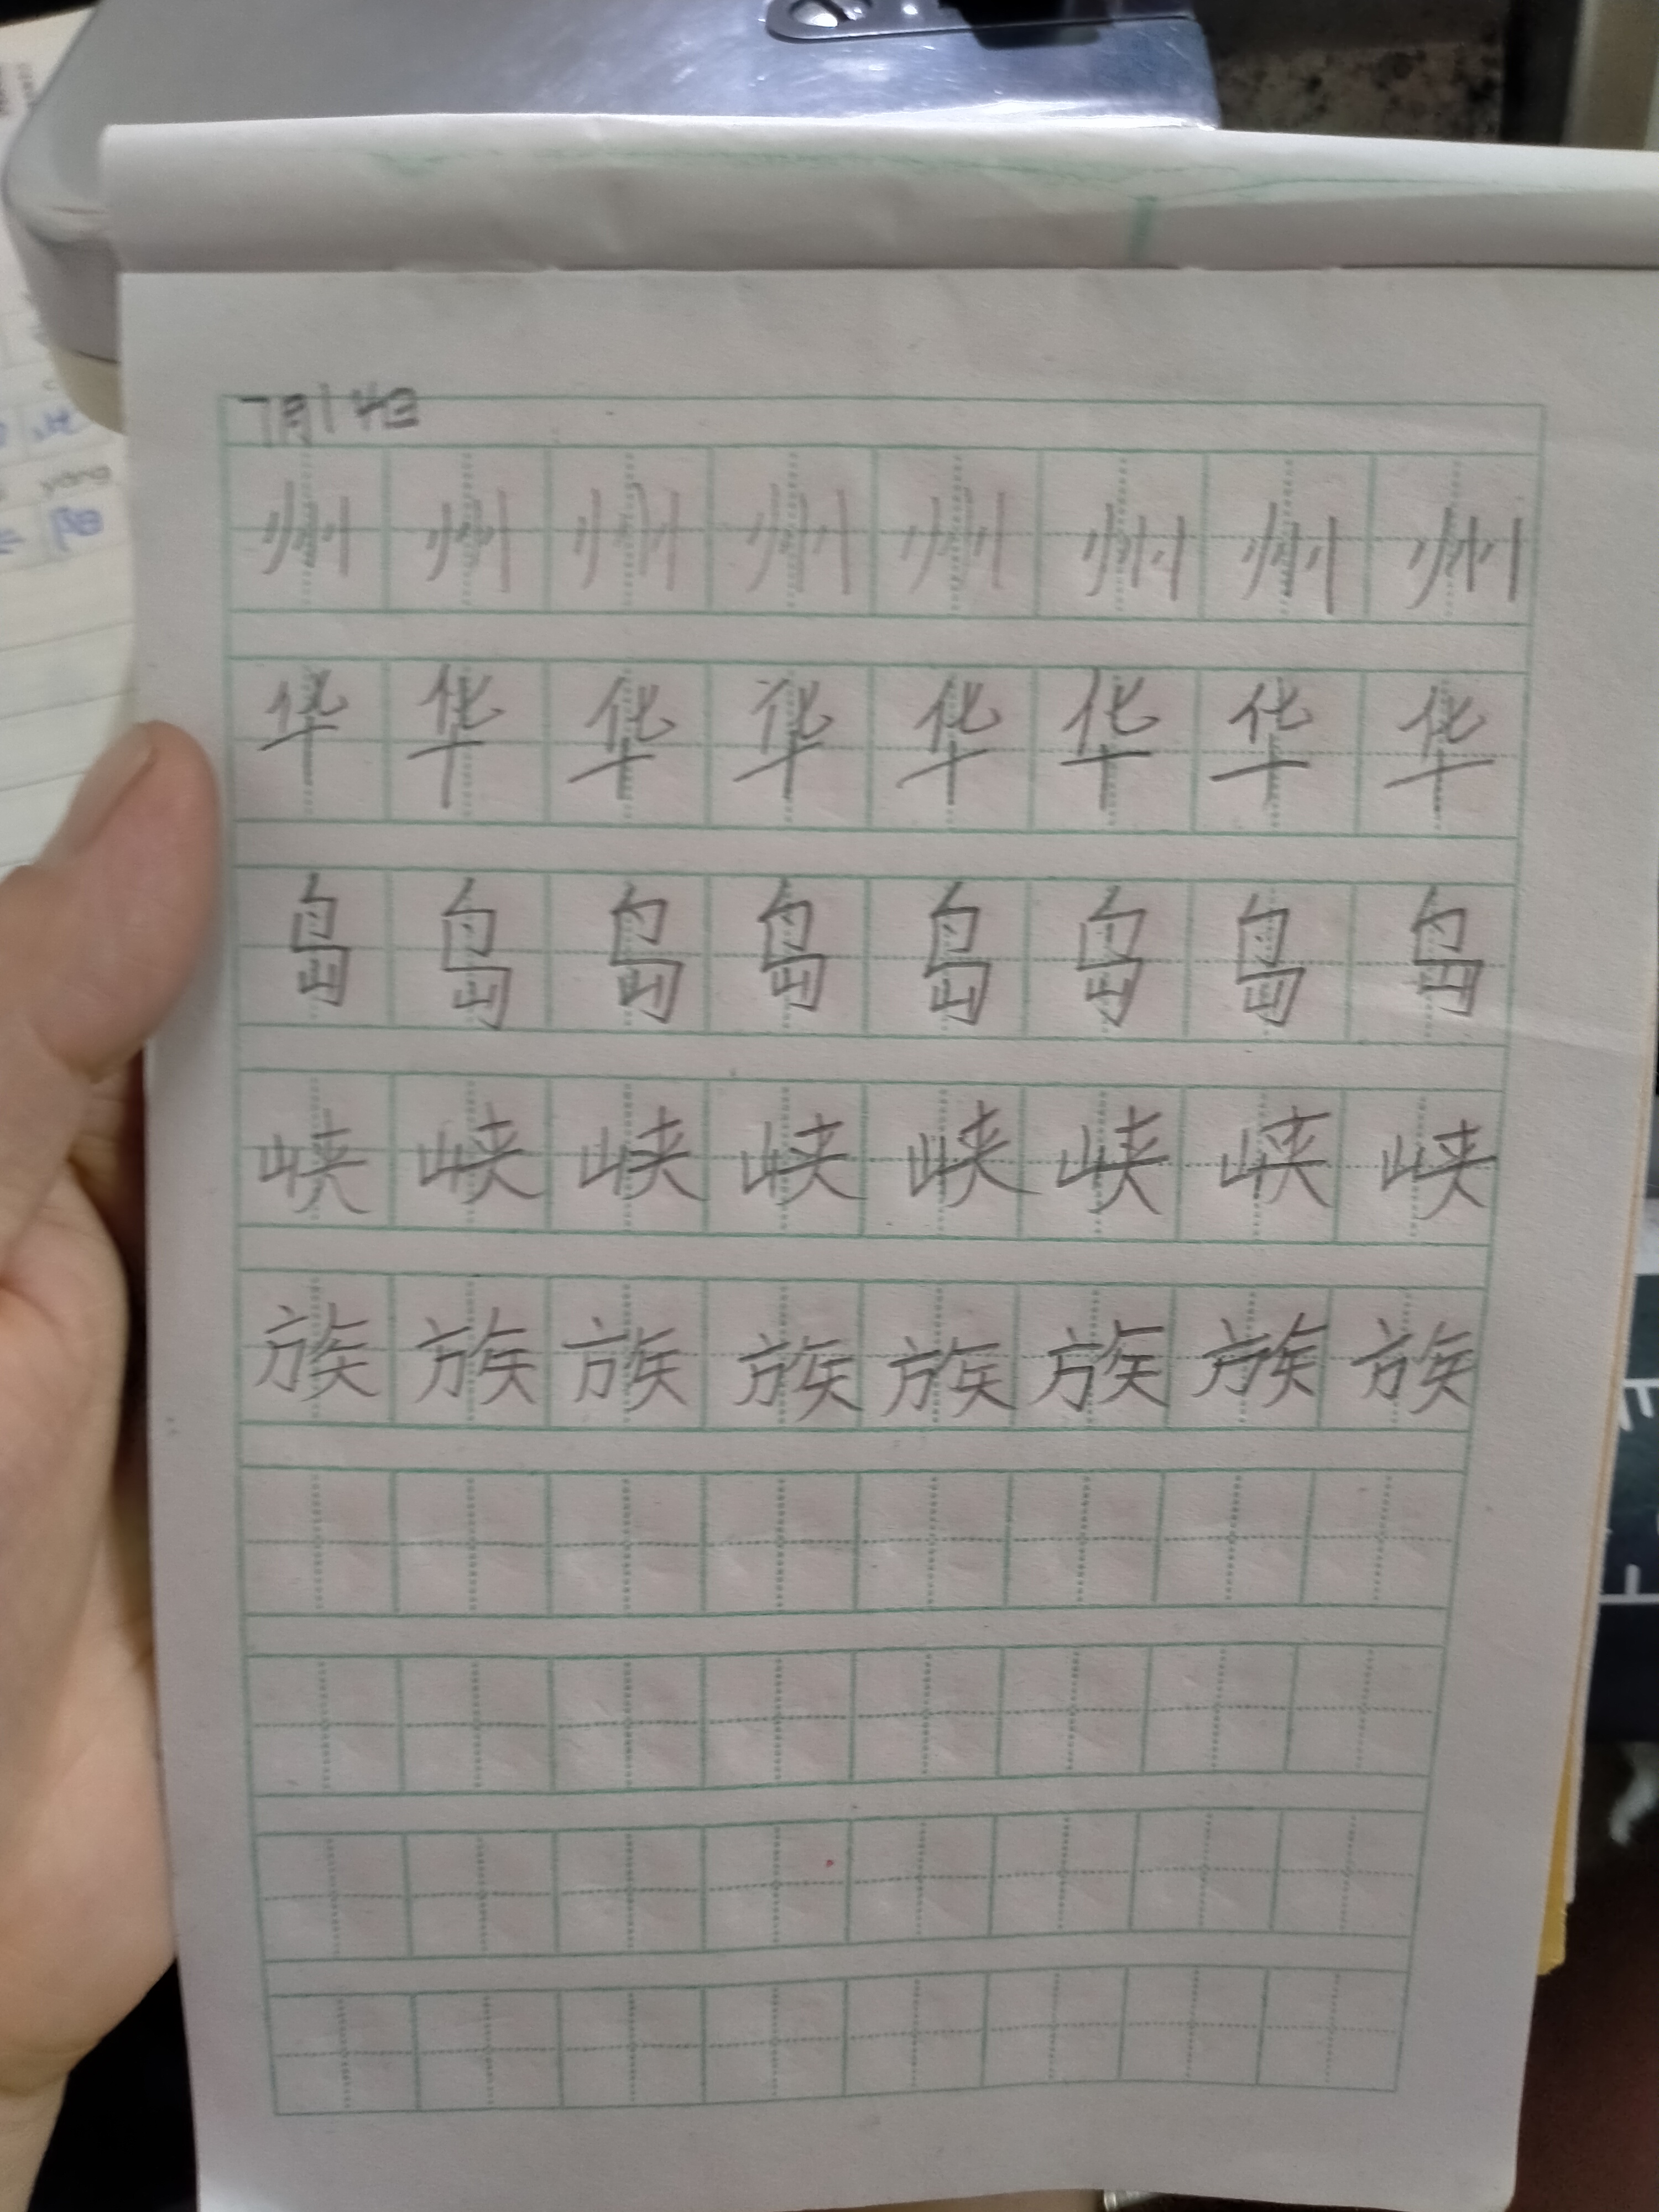 7月14日
州州州州州州州州
华华华华华华华华
岛岛岛岛岛岛岛岛
峡峡峡峡峡峡峡峡
族族族族族族族族
yáng
阳